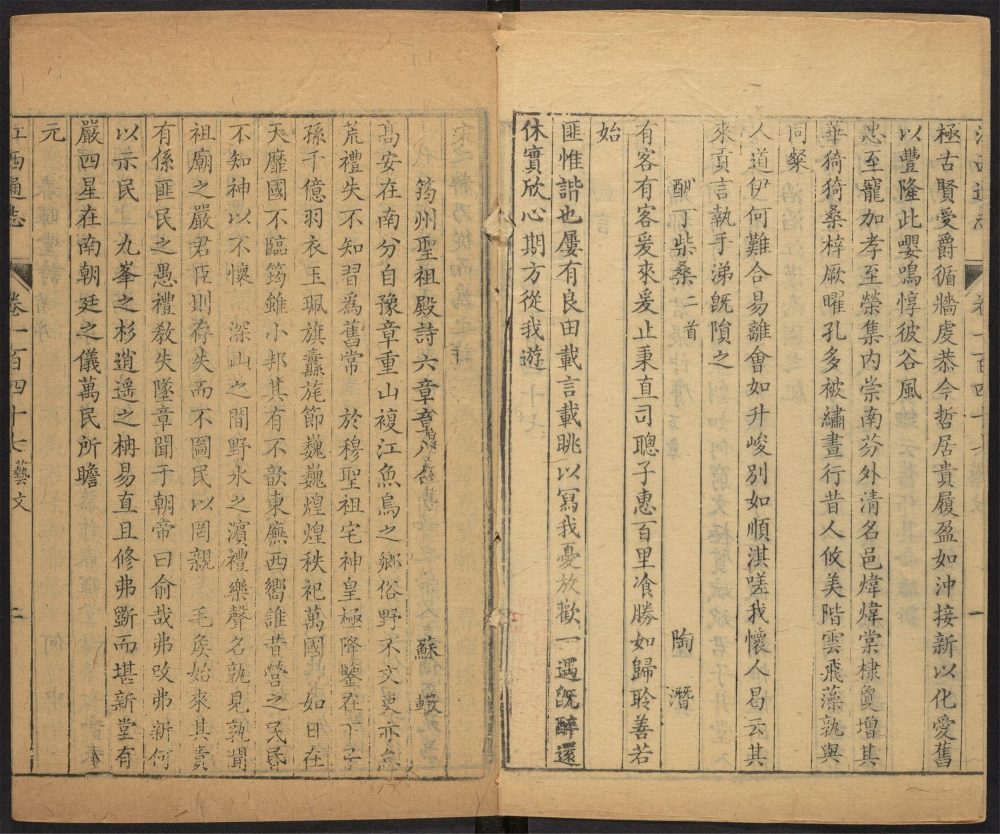 極古賢愛爵循牆虔恭今哲居貴履盈如沖接新以化愛舊
以豐隆此嚶鳴惇彼谷風
忠至寵加孝至榮集内崇南芬外清名邑煒煒棠棣夐增其
華猗猗桑梓厥曜孔多被繡晝行昔人攸美階雲飛藻孰與
同粲
人道伊何難合易離會如升峻別如順淇嗟我懷人曷云其
來貢言執手涕既隕之
酬丁柴桑二首
陶潛
有客有客爰來爰止秉直司聰子惠百里飡勝如歸聆善若
始
匪惟諧也屢有良田載言載眺以冩我憂放歡一遇既醉還
休實欣心期方從我遊
筠州聖祖殿詩六章章八句
蘇轍
高安在南分自豫章重山複江魚鳥之鄉俗野不文吏亦怠
荒禮失不知習爲舊常 於穆聖祖宅神皇極降鑒在下子
孫千億羽衣玉珮旗纛旄節巍巍煌煌秩祀萬國 如日在
天靡國不臨筠雖小邦其有不歆東廡西嚮誰昔營之民昏
不知神以不懷 深山之間野水之濵禮樂聲名孰見孰聞
祖廟之嚴君臣則存失而不圖民以罔親 毛矦始來其責
有係匪民之愚禮教失墜章聞于朝帝曰俞哉弗改弗新何
以示民 九峯之杉逍遥之柟易直且修弗斲而堪新堂有
嚴四星在南朝廷之儀萬民所瞻
元
江西通志
卷一百四十七藝文
二